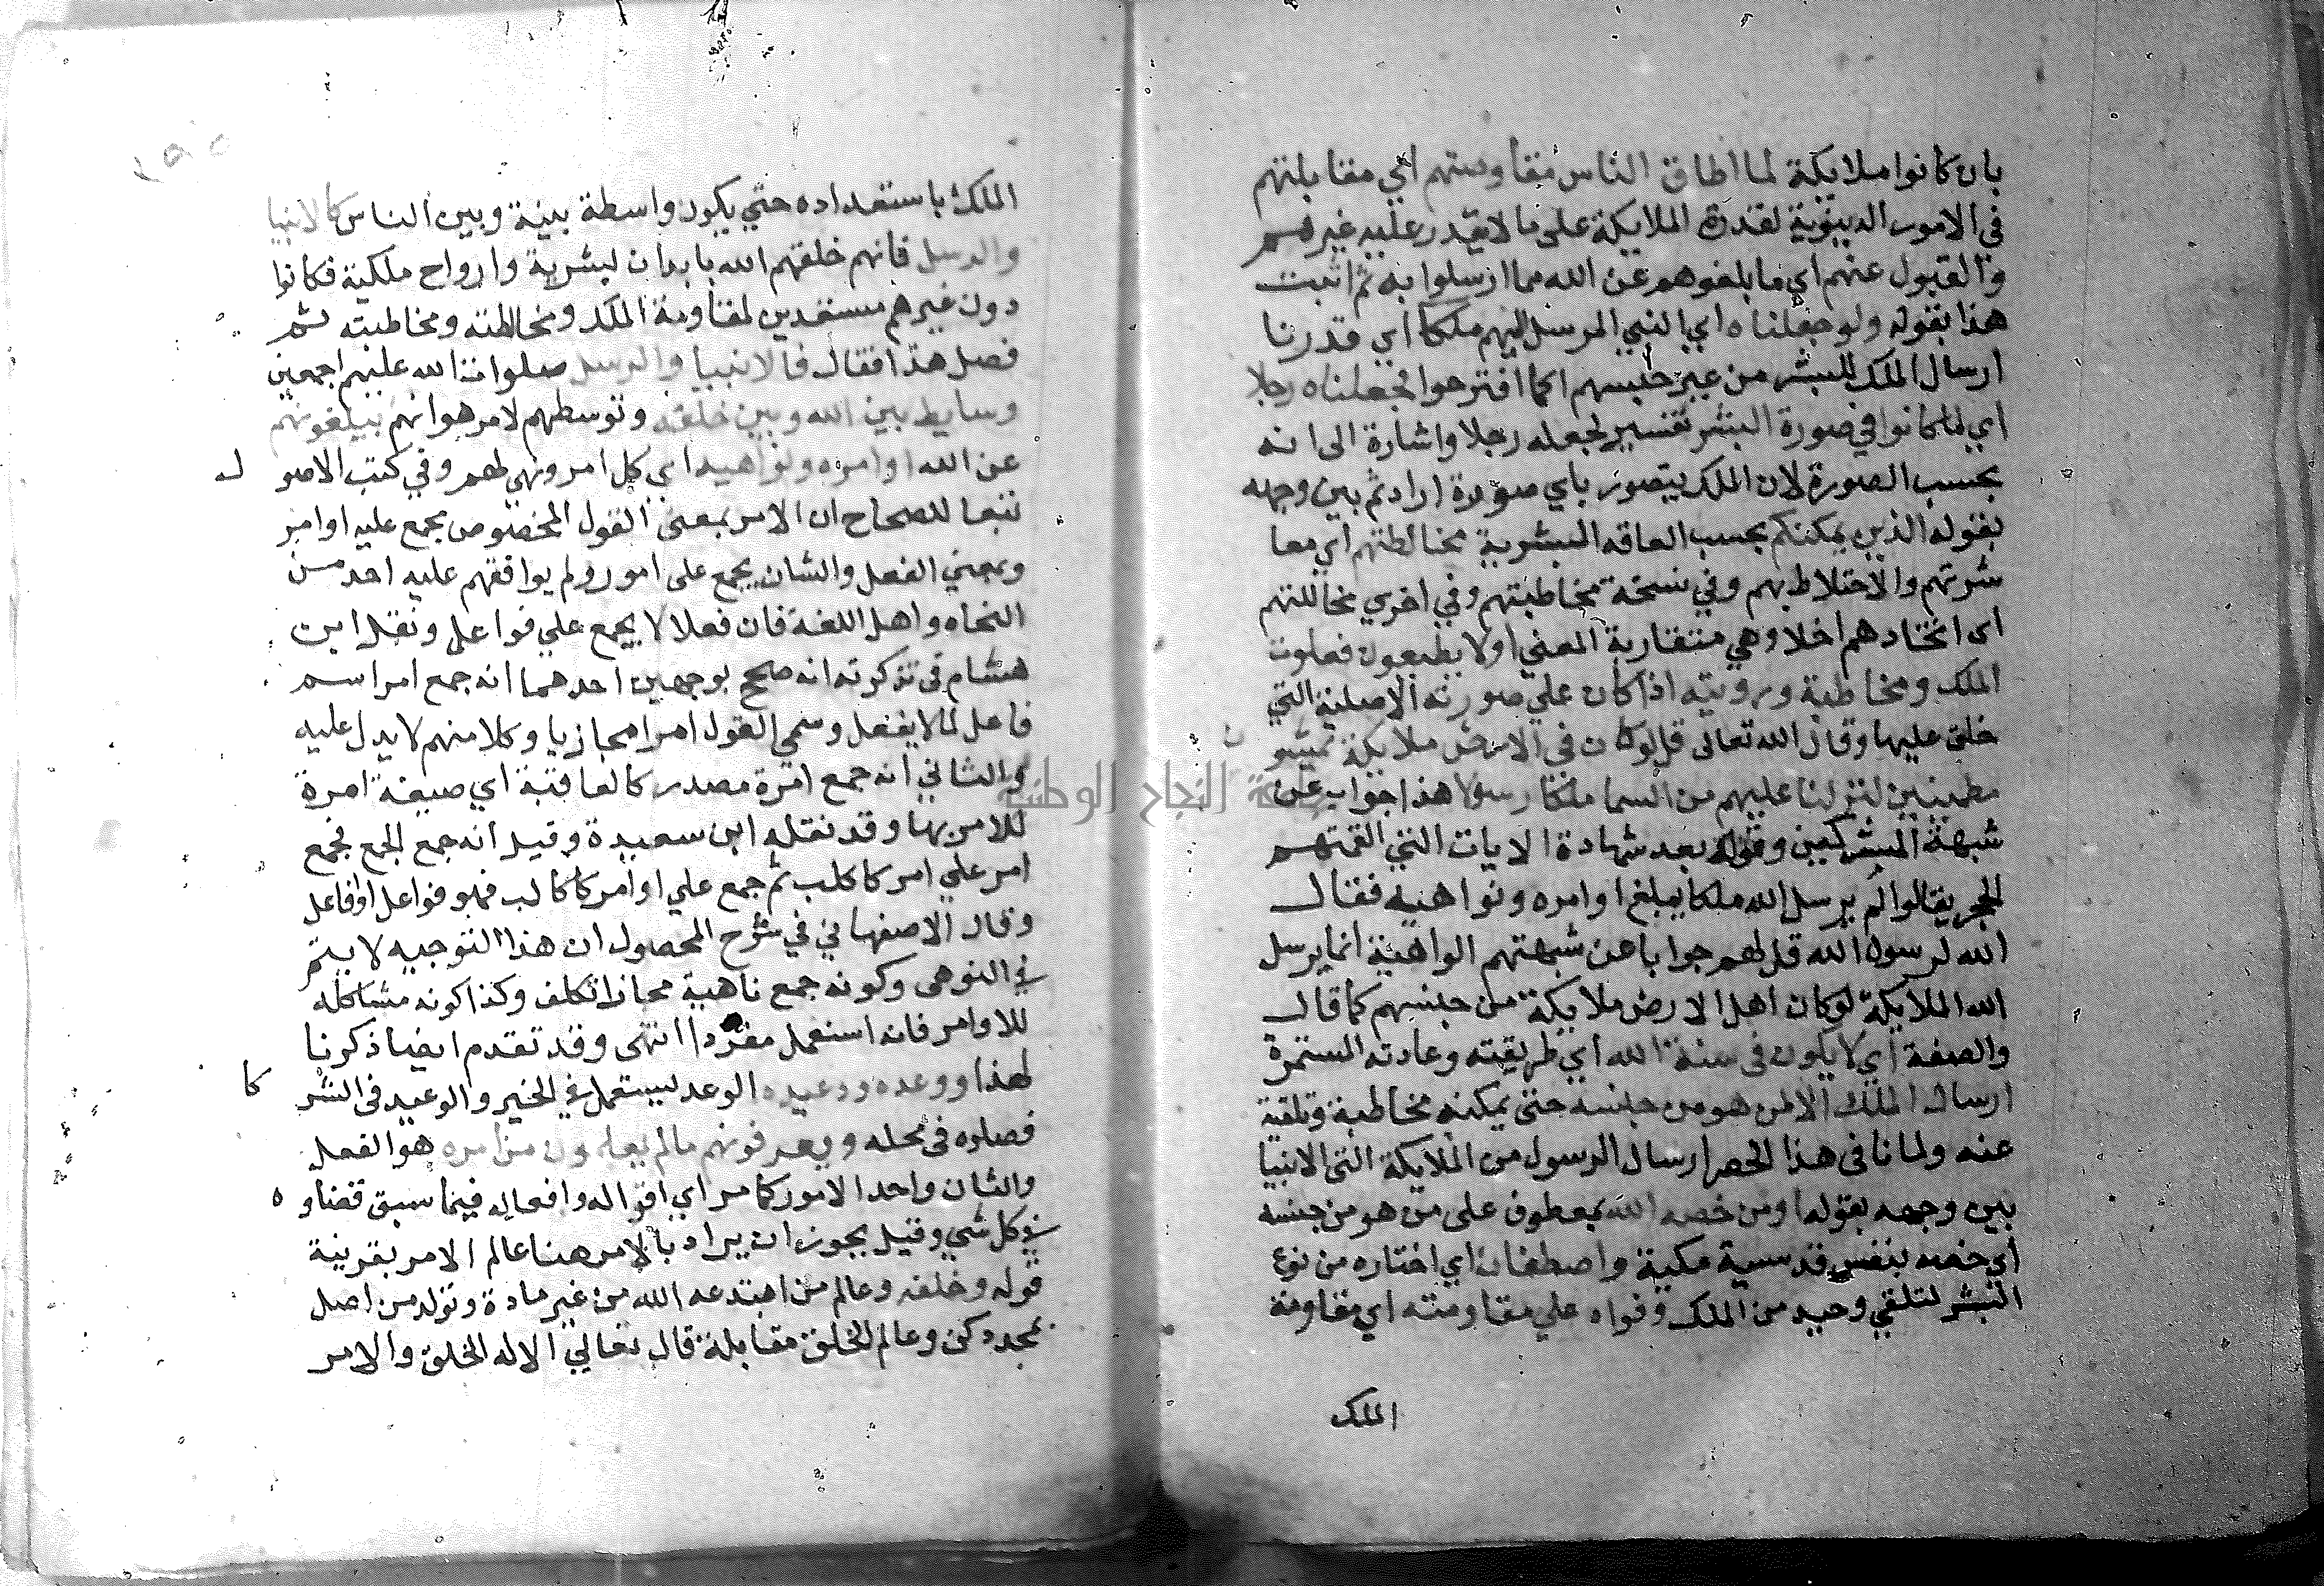 بان كانوا ملايكة لما اطاق الناس مقاومتهم اي مقابلتهم
في الامور الدينوية لقدرة الملايكة على ما لا يقدر عليه غيرهم
والقبول عنهم اي ما بلغوهم عن الله مما ارسلوا به ثم اثبت
هذا بقوله ولو جعلناه اي النبي المرسل اليهم ملكا اي قدرنا
ارسال الملك للبشر من غير جنسهم كما اقترحوا لجعلناه رجلا
اي لما كانوا في صورة البشر تفسير لجعله رجلا واشارة الى انه
بحسب الصورة لان الملك يتصور باي صورة اراد ثم بين وجهه
بقوله الذين يمكنكم بحسب الطاقة البشرية مخالطتهم اي معا
شرتهم والاختلاط بهم وفي نسخة مخاطبتهم وفي اخري مخاللتهم
اي اتخاذهم اخلا وهي متقاربة المعني اولا يطيعون
الملك ومخاطبة ورويته اذا كان علي صورته الاصلية التي
خلق عليها وقال الله تعالى قل لو كان في الارض ملايكة يمشو ن
مطمينين لنزلنا عليهم من السما ملكا رسولا هذا جواب عن
شبهة المشركين وقوله بعد شهادة الايات التي القمتهم
الحجر يقالوا لم يرسل الله ملكا يبلغ اوامره ونواهيه فقال
الله لرسول الله قل لهم جوابا عن شبهتهم الواهية انما يرسل
الله الملايكة لو كان اهل الارض ملايكة من جنسهم كما قال
والصفة اي لا يكون في سنة الله اي طريقته وعادته المستمرة
ارسال الملك الا لمن هو من جنسه حتى يمكنه مخاطبة وتلقية
عنه ولما نافى هذا الحصر ارسال الرسول من الملايكة التى الانبيا
بين وجهه بقوله او من خصه الله معطوف على من هو من جنسه
اي خصه بنفس قدسية مكية واصطفاه اي اختاره من نوع
البشر لتلقي وحيه من الملك وقواه علي مقاومته اي مقاومة
الملك
الملك باستعداده حتي يكون واسطة بينه وبين الناس كالانبيا
والرسل فانهم خلقهم الله بابدان بشرية وارواح ملكية فكانوا
دون غيرهم مستعدين لمقاومة الملك ومخالطته ومخاطبته ثم
فصل هذا فقال فالانبيا والرسل صلوات الله عليهم اجمعين
وسايط بين الله وبين خلقه وتوسطهم لامر هو انهم يبلغونهم
عن الله اوامره ونواهيه اي كل امر ونهي لهم وفي كتب الاصو ل
تبعا للصحاح ان الامر بمعنى القول المخصوص يجمع عليه اوامر
وبمعني الفعل والشان يجمع على امور ولم يوافقهم عليه احد من
النحاه واهل اللغة فان فعلا لا يجمع علي فواعل ونقل ابن
هشام في تذكرته انه صحح بوجهين احدهما انه جمع امر اسم
فاعل لما لا يفعل وسمي القول امرا مجازيا وكلامهم لا يدل عليه
والثاني انه جمع امرة مصدر كالعاقبة اي صيغة امرة
للامر بها وقد نقله ابن سعيدة وقيل انه جمع الجمع فجمع
امر علي امر كاكلب ثم جمع علي اوامر كاكالب فهو فواعل او افاعل
وقال الاصفهاني في شرح المحصول ان هذا التوجيه لا يتم
في النوهى وكونه جمع ناهية مجازا تكلف وكذا كونه مشاكله
للاوامر فانه استعمل مفردا انتهى وقد تقدم ايضا ذكرنا
لهذا ووعده ووعيده الوعد يستعمل في الخير والوعيد في الشر كا
فصلوه في محله ويعرفونهم ما لم يعلمون من امره هو الفعل
والشان واحد الامور كما مر اي اقواله وافعاله فيما سبق قضاو ه
في كل شي وقيل يجوز ان يراد بالامر هنا عالم الامر بقرينة
قوله وخلقه وعالم من ابتدعه الله من غير مادة وتولد من اصل
بمجرد كن وعالم الخلق مقابلة قال تعالي الا له الخلق والامر